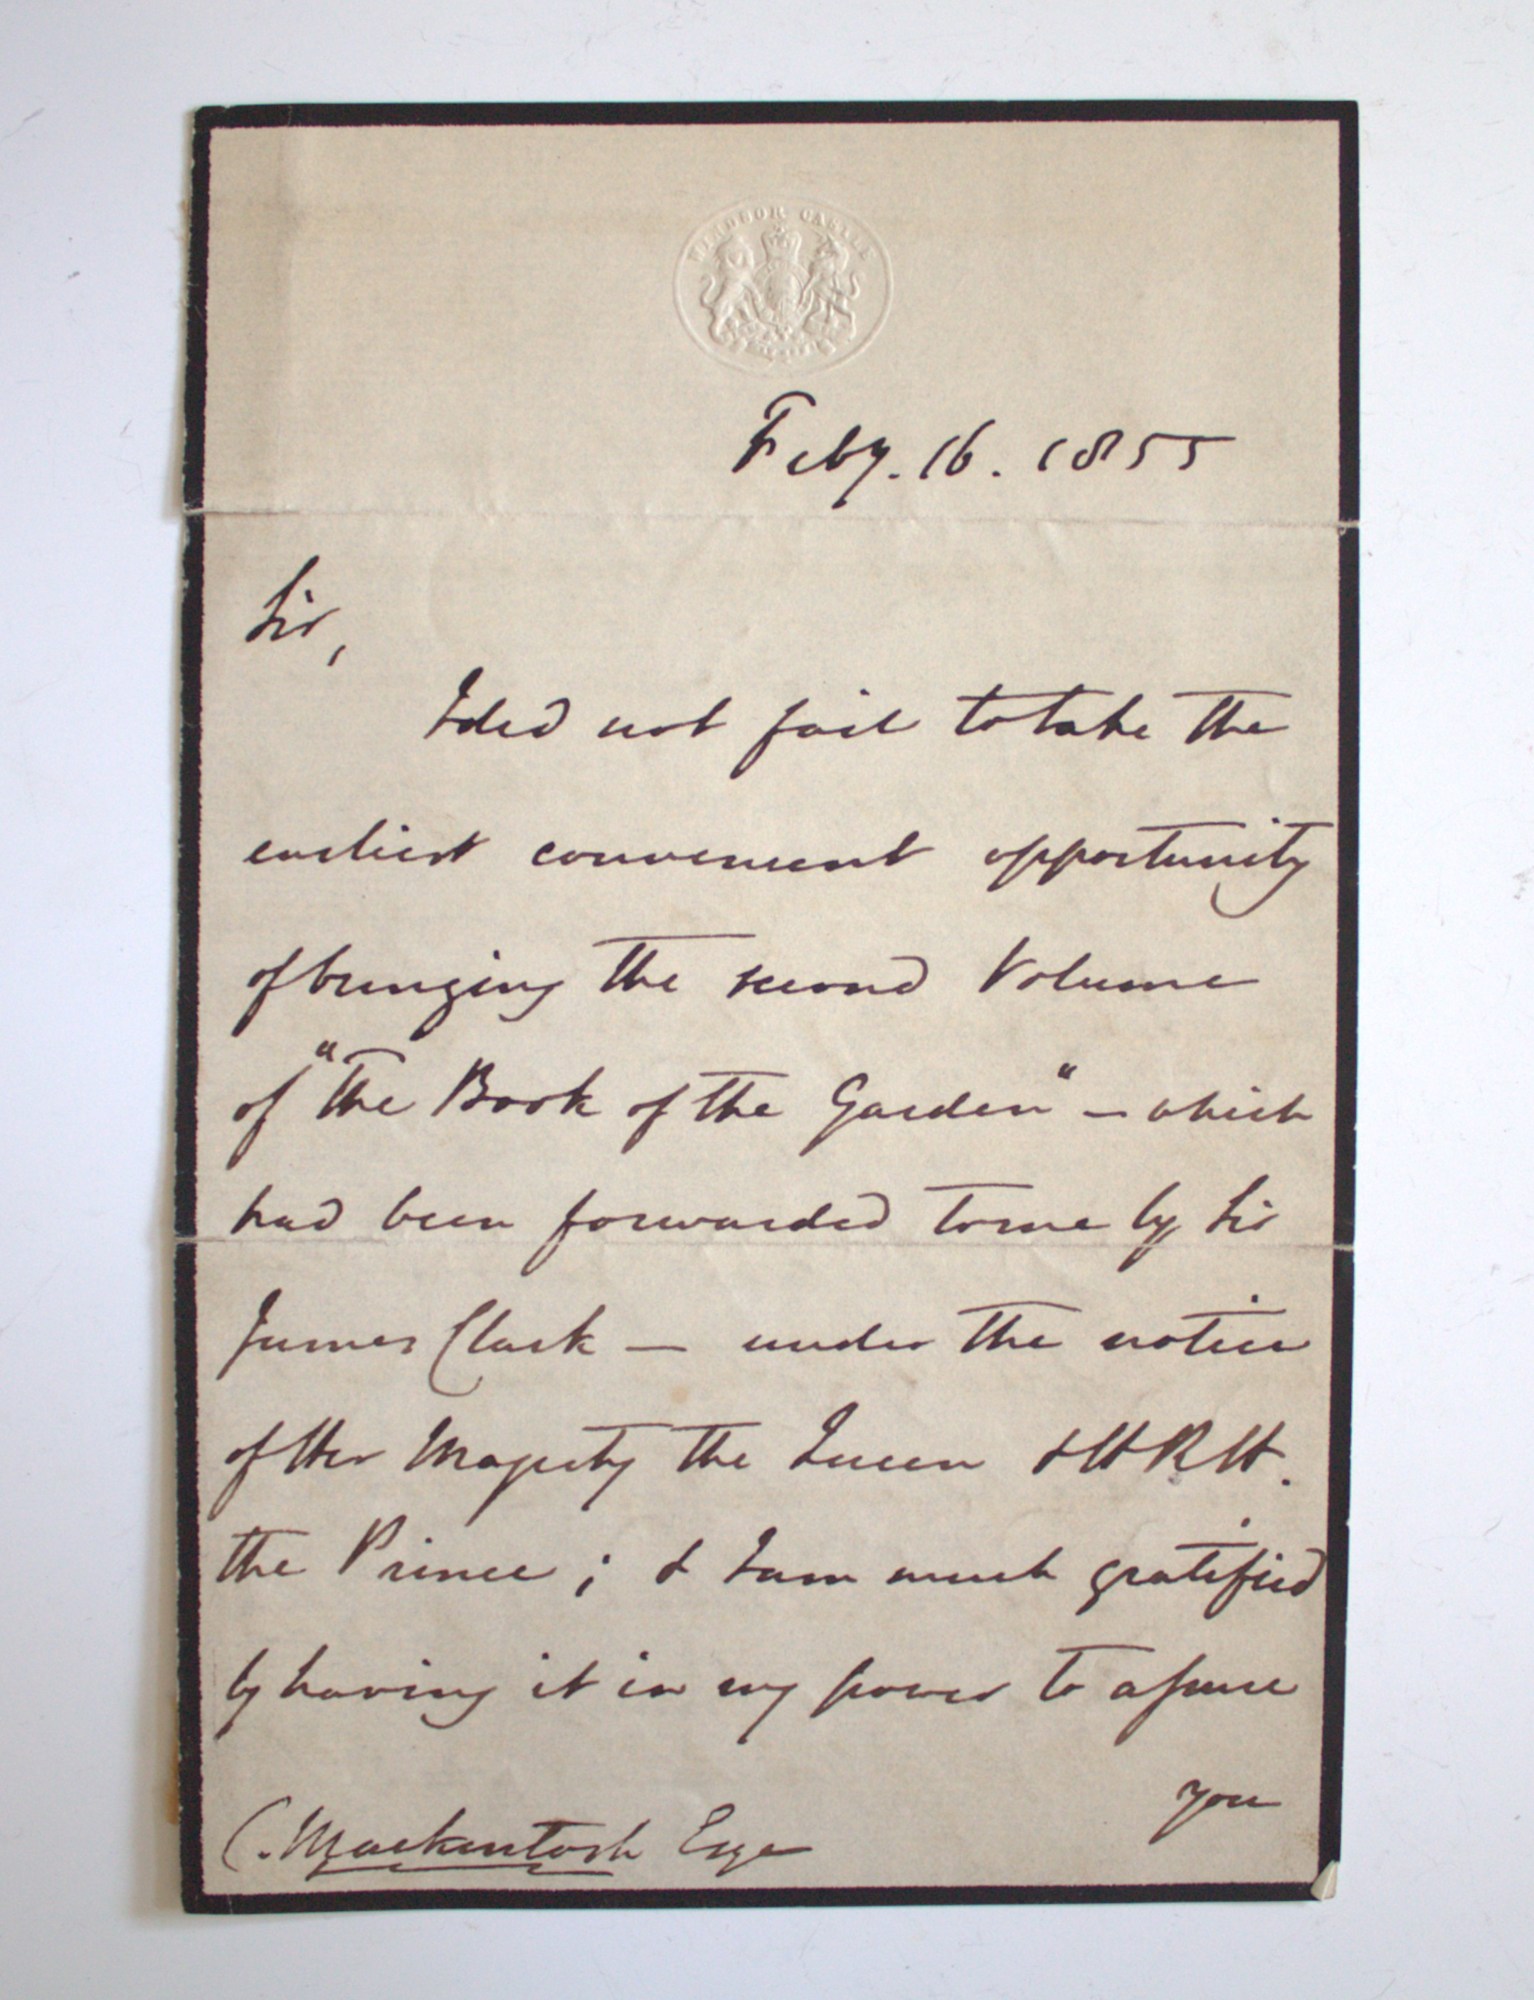 WINDSOR CASTLE
Feby. 16. 1855
Sir,
I did not fail to take the
earliest convenient opportunity
of bringing the second Volume
of "the Book of the Garden" — which
had been forwarded to me by Sir
James Clark — under the notice
of Her Majesty the Queen & HRH.
the Prince; & I am much gratified
by having it in my power to assure
you
C. Mackintosh Esqe